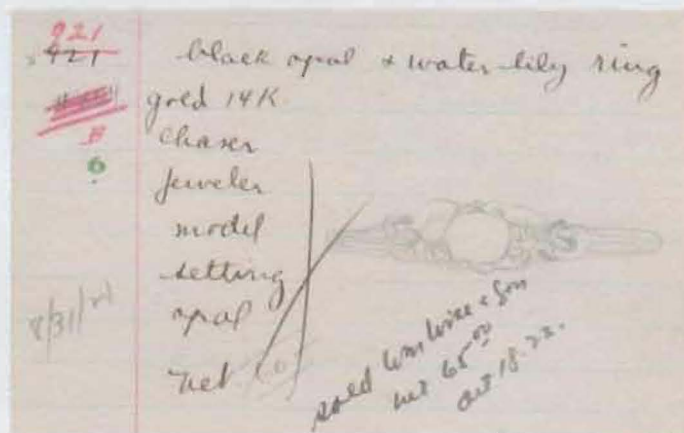 921
921
black opal & water lily ring
gold 14K
B
chaser
6
jeweler
model
setting
opal
8/31/21
net
sold Wm Wise & Son
net 65 00
Oct 18. 22.